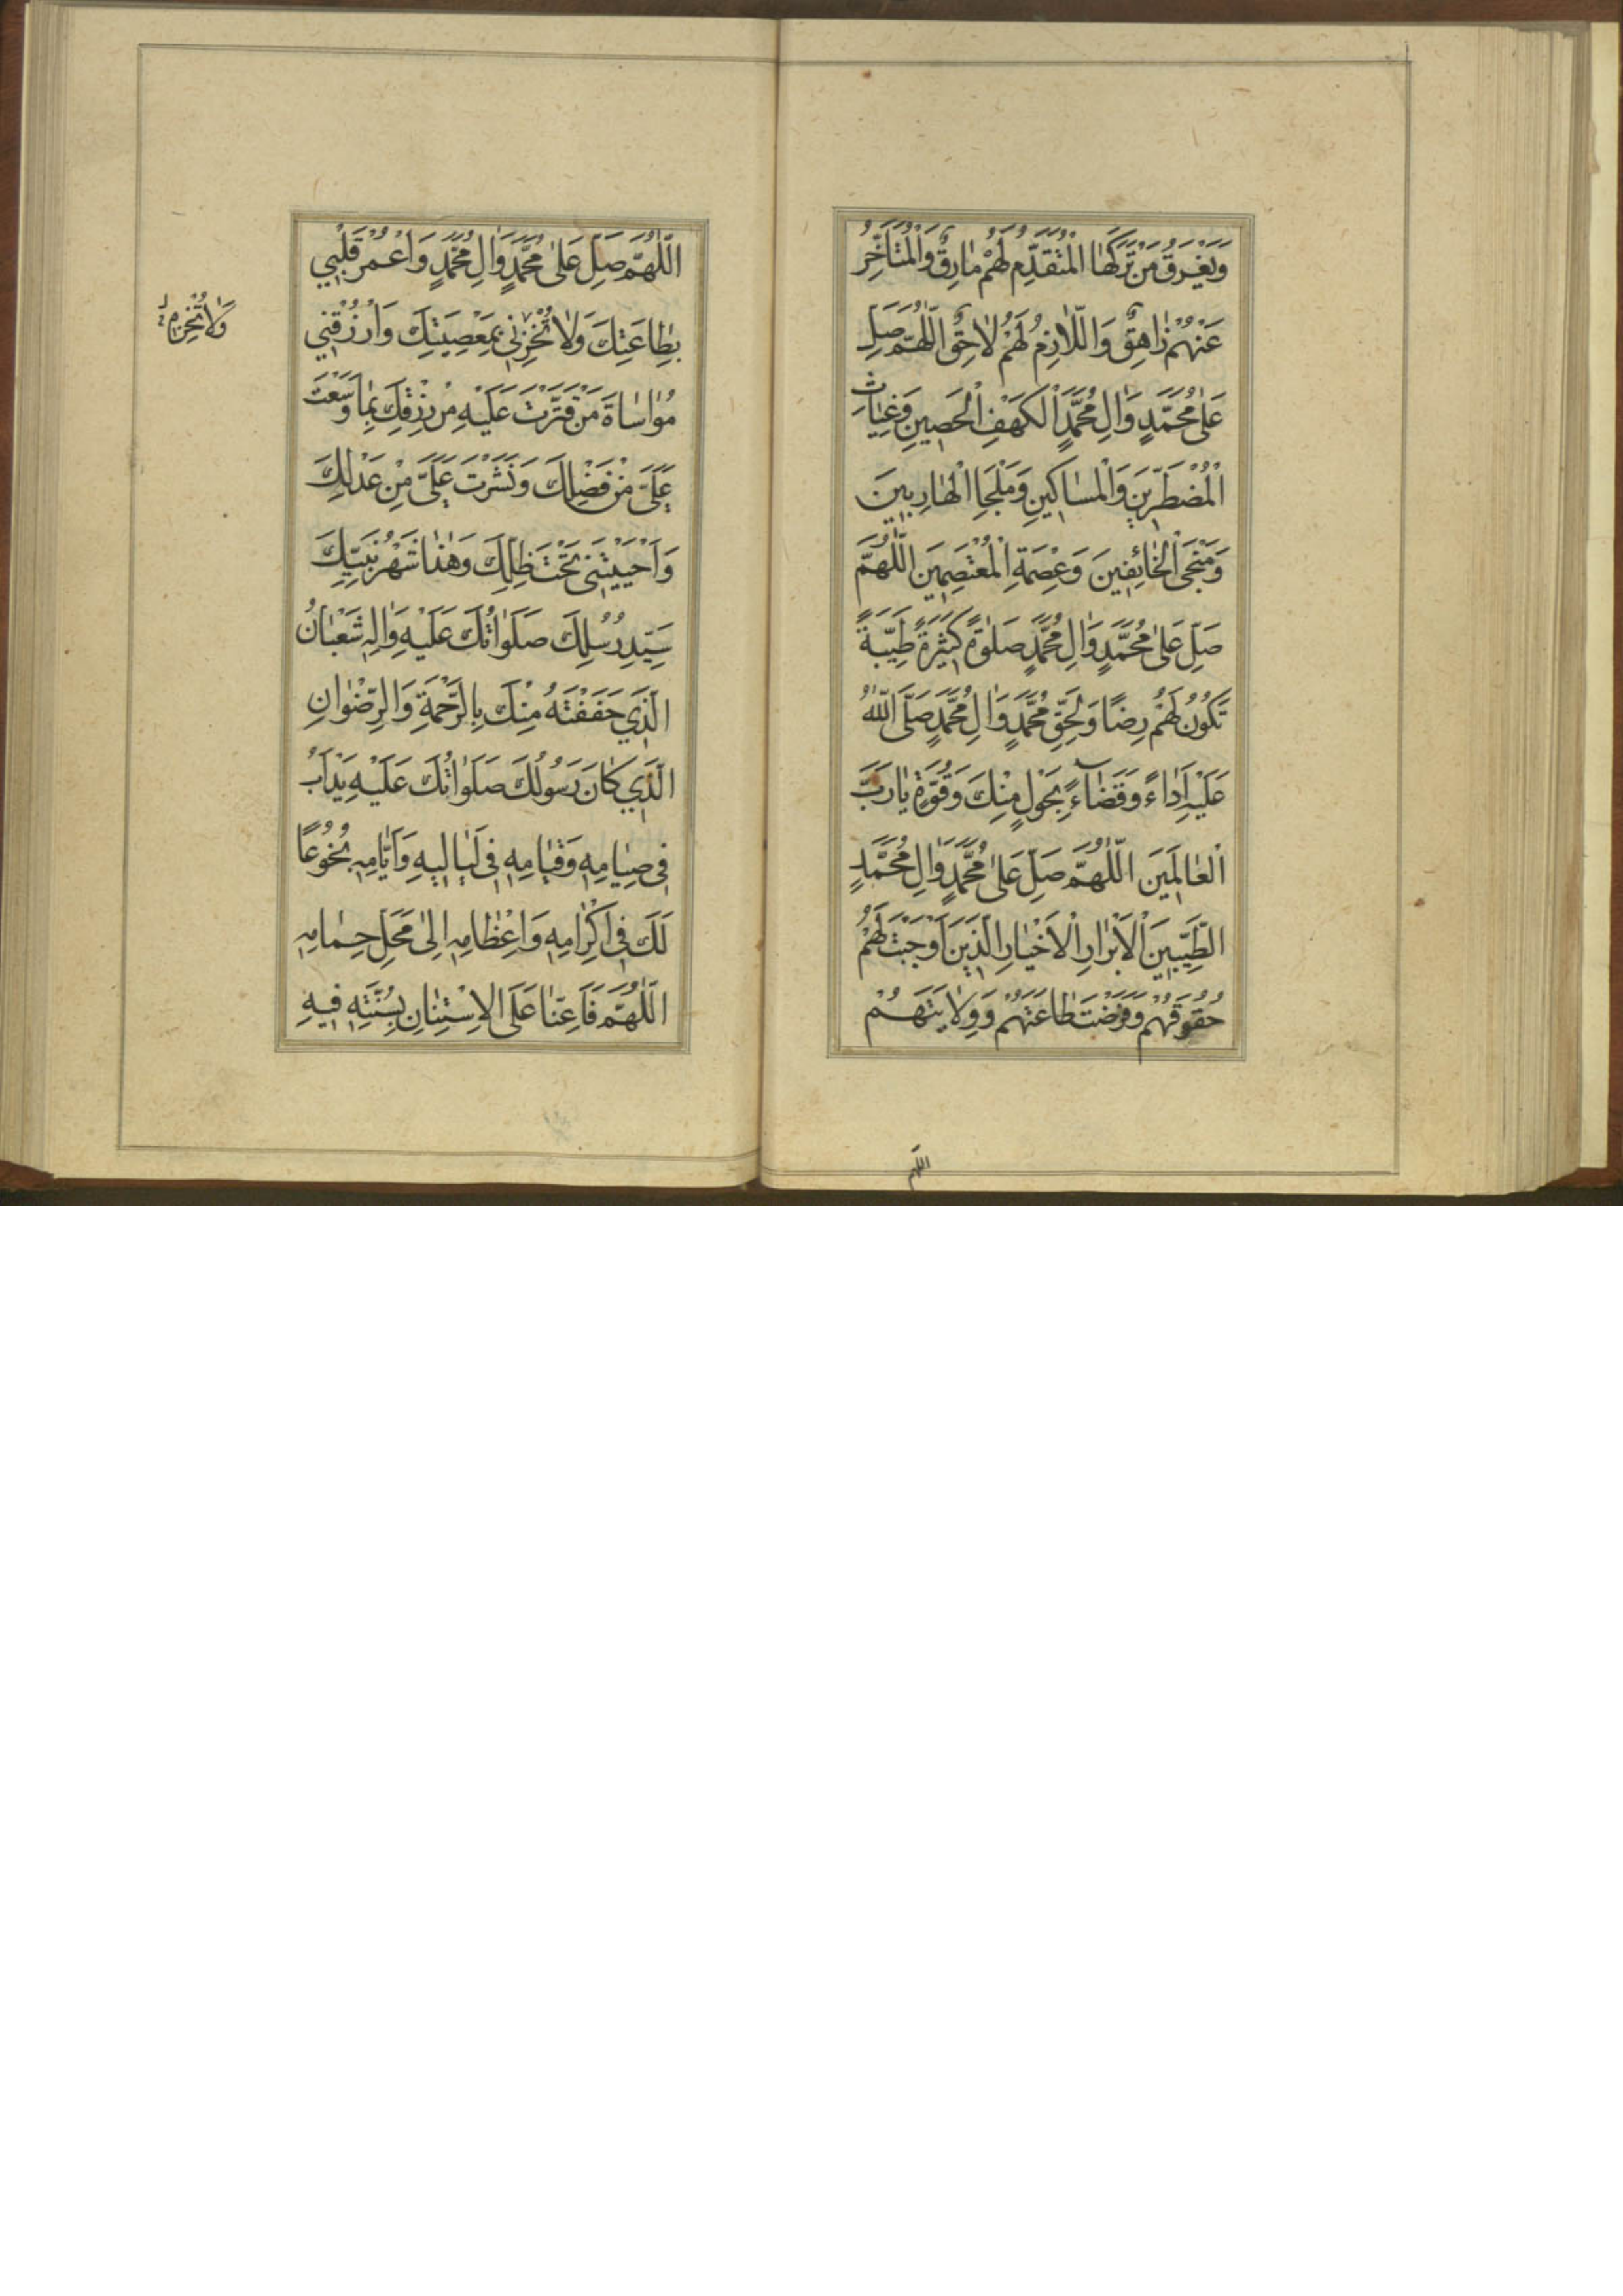 وَيَغْرَقُ مَنْ تَرَكَهَا الْمُتَقَدِّمُ لَهُمْ مَارِقٌ وَالْمُتَأَخِّرُ
عَنْهُمْ زَاهِقٌ وَاللَّازِمُ لَهُمْ لَاحِقٌ اَللّٰهُمَّ صَلِّ
عَلٰى مُحَمَّدٍ وَاٰلِ مُحَمَّدٍ الْكَهْفِ الْحَصِينِ وَغِيَاثِ
الْمُضْطَرِّينَ وَالْمَسَاكِينِ وَمَلْجَإِ الْهَارِبِينَ
وَمَنْجَى الْخَائِفِينَ وَعِصْمَةِ الْمُعْتَصِمِينَ اَللّٰهُمَّ
صَلِّ عَلٰى مُحَمَّدٍ وَاٰلِ مُحَمَّدٍ صَلٰوةً كَثِيرَةً طَيِّبَةً
تَكُونُ لَهُمْ رِضًا وَلِحَقِّ مُحَمَّدٍ وَاٰلِ مُحَمَّدٍ صَلَّى اللّٰهُ
عَلَيْهِ اَدَاءً وَقَضَاءً بِحَوْلٍ مِنْكَ وَقُوَّةٍ يَا رَبَّ
الْعَالَمِينَ اَللّٰهُمَّ صَلِّ عَلٰى مُحَمَّدٍ وَاٰلِ مُحَمَّدٍ
الطَّيِّبِينَ الْاَبْرَارِ الْاَخْيَارِ الَّذِينَ اَوْجَبْتَ لَهُمْ
حُقُوقَهُمْ وَفَرَضْتَ طَاعَتَهُمْ وَوِلَايَتَهُمْ
اللهم
اَللّٰهُمَّ صَلِّ عَلٰى مُحَمَّدٍ وَاٰلِ مُحَمَّدٍ وَاعْمُرْ قَلْبِي
بِطَاعَتِكَ وَلَا تُخْزِنِي بِمَعْصِيَتِكَ وَارْزُقْنِي
وَلَا تُخْزِنِي
مُوَاسَاةَ مَنْ قَتَّرْتَ عَلَيْهِ مِنْ رِزْقِكَ بِمَا وَسَّعْتَ
عَلَيَّ مِنْ فَضْلِكَ وَنَشَرْتَ عَلَيَّ مِنْ عَدْلِكَ
وَاَحْيَيْتَنِي تَحْتَ ظِلِّكَ وَهٰذَا شَهْرُ نَبِيِّكَ
سَيِّدِ رُسُلِكَ صَلَوَاتُكَ عَلَيْهِ وَاٰلِهِ شَعْبَانُ
الَّذِي حَفَفْتَهُ مِنْكَ بِالرَّحْمَةِ وَالرِّضْوَانِ
الَّذِي كَانَ رَسُولُكَ صَلَوَاتُكَ عَلَيْهِ يَدْاَبُ
فِي صِيَامِهِ وَقِيَامِهِ فِي لَيَالِيهِ وَاَيَّامِهِ بُخُوعًا
لَكَ فِي اِكْرَامِهِ وَاِعْظَامِهِ اِلٰى مَحَلِّ حِمَامِهِ
اَللّٰهُمَّ فَاَعِنَّا عَلَى الْاِسْتِنَانِ بِسُنَّتِهِ فِيهِ